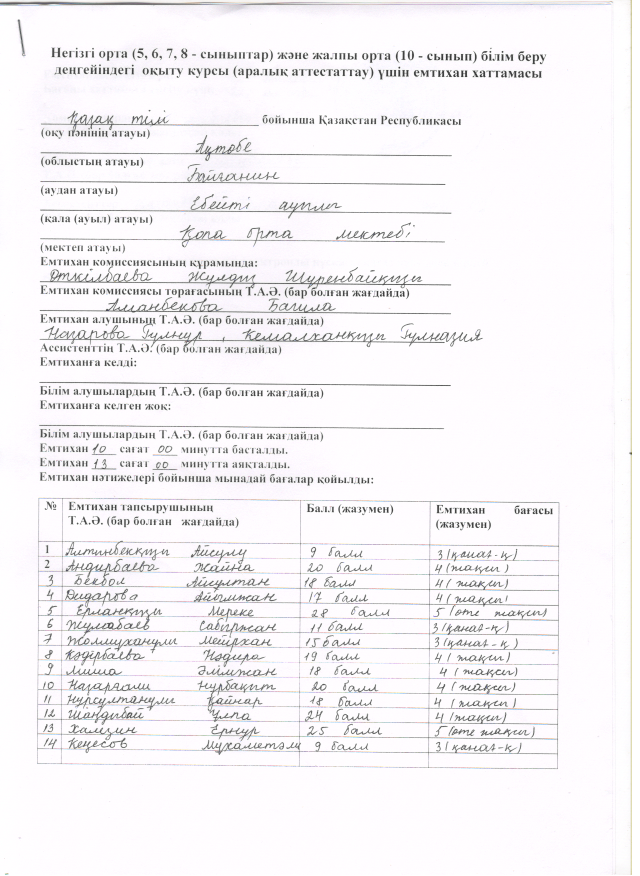 Негізгі орта (5, 6, 7, 8 - сыныптар) және жалпы орта (10 - сынып) білім беру
деңгейіндегі оқыту курсы (аралық аттестаттау) үшін емтихан хаттамасы
Қазақ тілі бойынша Қазақстан Республикасы
(оқу пәнінің атауы)
Ақтөбе
(облыстың атауы)
Байғанин
(аудан атауы)
Ебейті ауылы
(қала (ауыл) атауы)
Қопа орта мектебі
(мектеп атауы)
Емтихан комиссиясының құрамында:
Өткілбаева Жулдыз Шуренбайқызы
Емтихан комиссиясы төрағасының Т.А.Ә. (бар болған жағдайда)
Аманбекова Багила
Емтихан алушының Т.А.Ә. (бар болған жағдайда)
Назарова Гулнур, Кемалханқызы Гулназия
Ассистенттің Т.А.Ә. (бар болған жағдайда)
Емтиханға келді:
Білім алушылардың Т.А.Ә. (бар болған жағдайда)
Емтиханға келген жоқ:
Білім алушылардың Т.А.Ә. (бар болған жағдайда)
Емтихан 10 сағат 00 минутта басталды.
Емтихан 13 сағат 00 минутта аяқталды.
Емтихан нәтижелері бойынша мынадай бағалар қойылды:
№ Емтихан тапсырушының Балл (жазумен) Емтихан бағасы
Т.А.Ә. (бар болған жағдайда) (жазумен)
1 Алтинбекқызы Айсулу 9 балл 3 (қанағ-қ)
2 Андирбаева Жайна 20 балл 4 (жақсы)
3 Бекбол Айсултан 18 балл 4 (жақсы)
4 Дидарова Айымжан 17 балл 4 (жақсы)
5 Ерланқызы Мереке 28 балл 5 (өте жақсы)
6 Сабыржан 11 балл 3 (қанағ-қ)
7 Жолмуханулы Мейрхан 15 балл 3 (қанағ-қ)
8 Кәдірбаева Нәдира 19 балл 4 (жақсы)
9 Миша Әлімжан 18 балл 4 (жақсы)
10 Назарғали Нурбақыт 20 балл 4 (жақсы)
11 Нурсултанулы Қайнар 18 балл 4 (жақсы)
12 Шаңдыбай Улпа 24 балл 4 (жақсы)
13 Хамзин Ернур 25 балл 5 (өте жақсы)
14 9 балл 3 (қанағ-қ)